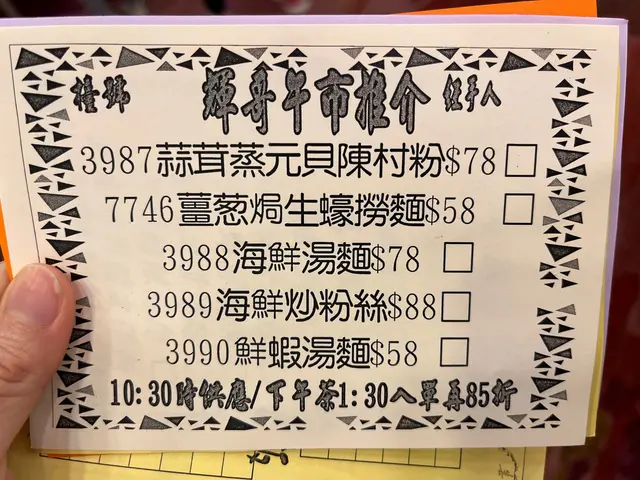 檯號 輝哥午市推介 經手人
3987蒜茸蒸元貝陳村粉$78
7746薑葱焗生蠔撈麵$58
3988海鮮湯麵$78
3989海鮮炒粉絲$88
3990鮮蝦湯麵$58
10:30時供應/下午茶1:30入單再85折